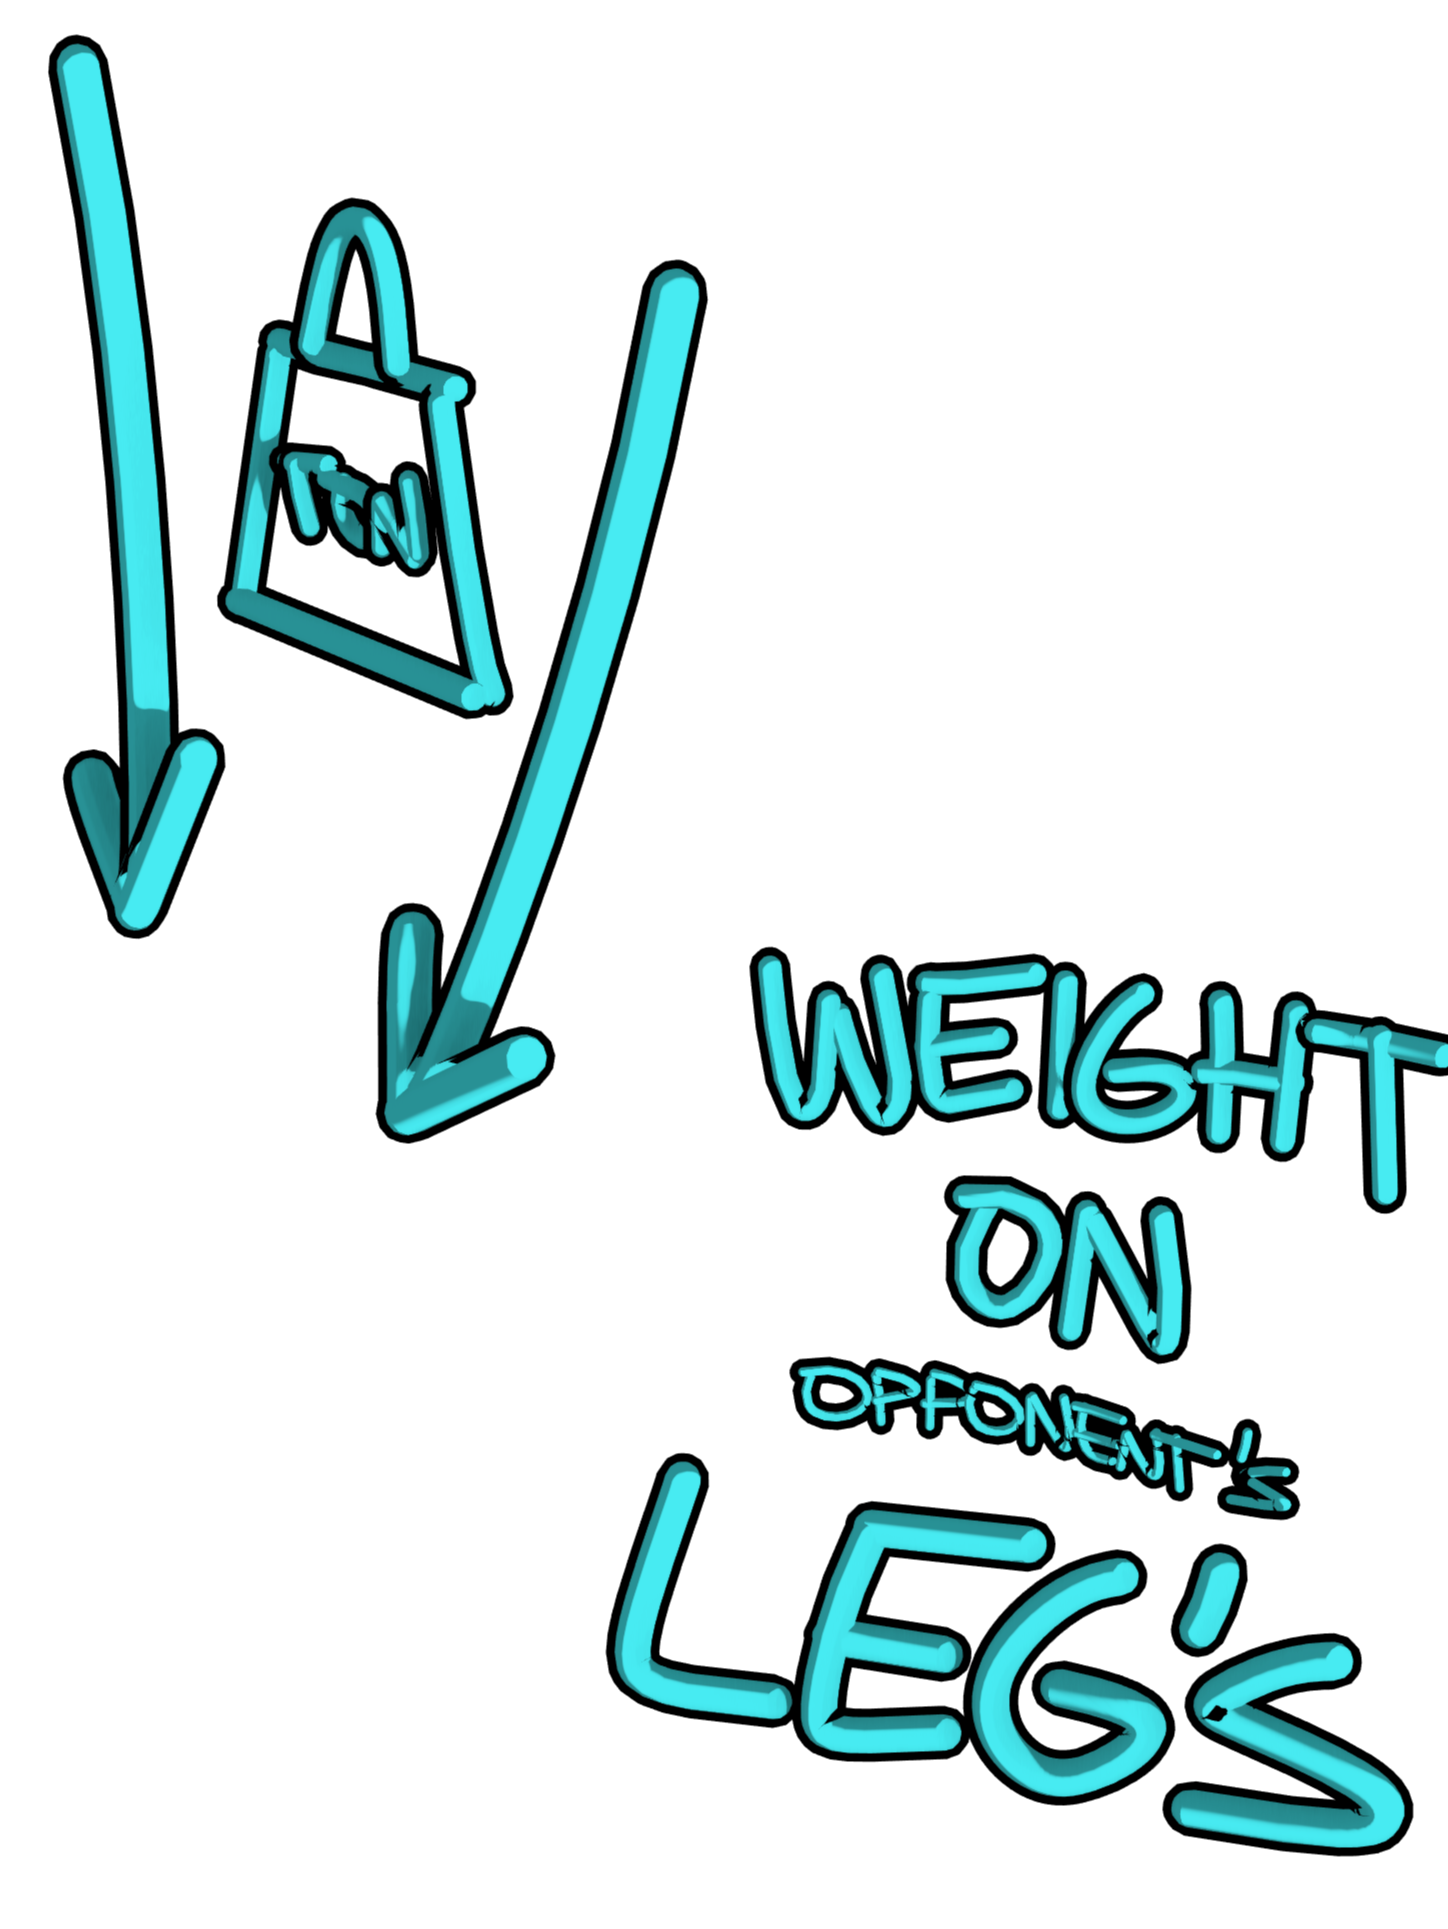 TON
WEIGHT
ON
OPPONENT'S
LEG'S